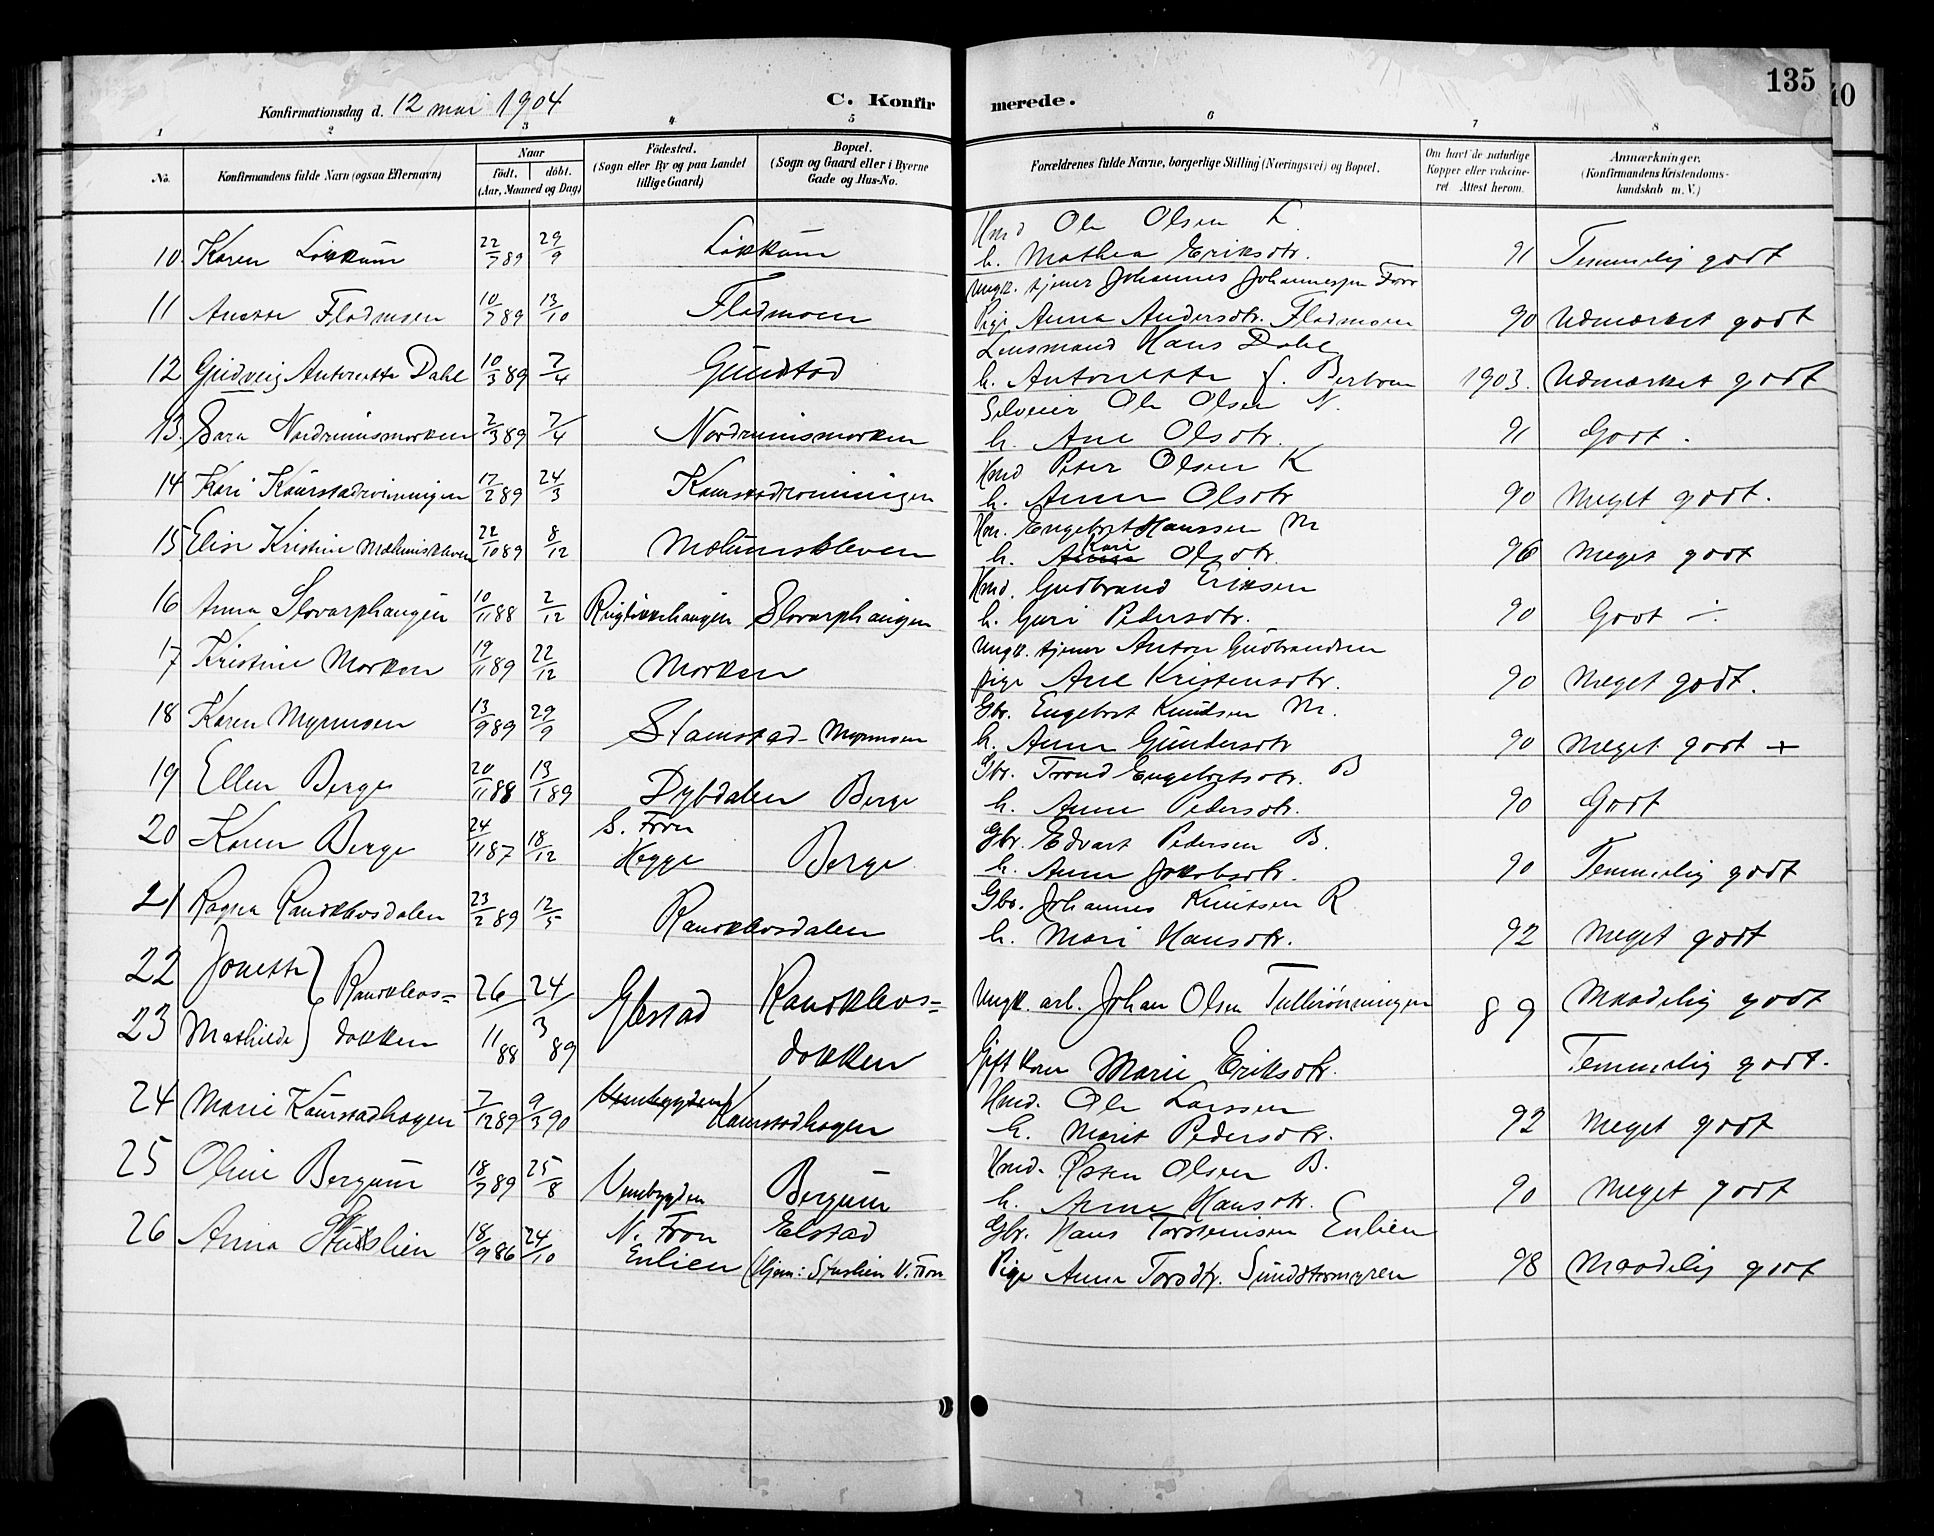 135
40
Konfirmationsdag d. 12 mai 1904 C. Konfirmerede.
1 2 3 4 5 6 7 8
No. Konfirmandens fulde Navn (ogsaa Efternavn) Naar Födt. döbt. (Aar, Maaned og Dag) Födested. (Sogn eller By og paa Landet tillige Gaard) Bopæl. (Sogn og Gaard eller i Byerne Gade og Hus-No. Forældrenes fulde Navne, borgerlige Stilling (Næringsvei) og Bopæl. Om havt de naturlige Kopper eller vakcineret Attest herom. Anmærkninger. (Konfirmandens Kristendomskundskab m. V.)
Hmd Ole Olsen L
10. Karen Løkkum 22/7 89 29/9 Løkkum h. Mathea Eriksdtr. 91 Temmelig godt
Ungk. tjener Johannes Johannessen Fron
11 Anette Flodmoen 10/7 89 13/10 Flodmoen Pige Anna Andersdtr. Flodmoen 90 Udmærket godt
Lensmand Hans Dahl
12 Gudveig Antonette Dahl 10/3 89 7/4 Gundstad h. Antonette f. 1903. Udmærket godt
Selveier Ole Olsen N.
13. Sara Nordrumsmorken 2/3 89 7/4 Nordrumsmorken h. Ane Olsdtr. 91 Godt.
Hmd Peter Olsen K
14 Kari Kaurstadrønningen 17/2 89 24/3 Kaurstadrønningen h. Anne Olsdtr 90 Meget godt.
Hm. Engebret Hanssen M
15. Elise Kristine Mælumskleven 22/10 89 8/12 Mælumskleven h. Anne Kari Olsdtr. 96 Meget godt
Hmd. Gudbrand Eriksen
16 Anna Slovarphaugen 10/11 88 2/12 Slovarphaugen h. Guri Pedersdtr. 90 Godt ÷
Ungk. tjener Anton Gudbrandsen
17 Kristine Morken 19/11 89 22/12 Morken pige Ane Kristensdtr. 90 Meget godt.
Gbr. Engebret Knudsen M.
18 Karen Myrmoen 13/9 89 29/9 Stamstad - Myrmoen h. Anne Gundersdtr 90 Meget godt +
Gbr. Trond Engebretsdtr. B
19 Ellen Berge 20/11 88 13/1 89 Dybdalen Berge h. Anne Pedersdtr. 90 Godt
S. Fron Gbr. Edvart Pedersen B.
20 Karen Berge 24/11 87 18/12 Hegge Berge h. Anne Jakobsdtr. 90 Temmelig godt
Gbr. Johannes Knutsen R
21 Ragna Randklevsdalen 23/2 89 12/5 Randklevsdalen h. Mari Hansdtr. 92 Meget godt
22 Jonette Randklevs= 26/11 88 24/3 89 Elstad Randklevs= Ungk. arb. Johan Olsen Tullirønningen 89 Maadelig godt
23 Mathilde dokken dokken Gift kone Marie Eriksdtr. Temmelig godt.
Hmd. Ole Larssen
24 Marie Kaurstadhagen 7/12 89 9/3 90 Venebygden Kaurstadhagen h. Marit Pedersdtr. 92 Meget godt
Hmd. Østen Olsen B.
25 Oline Bergum 18/7 89 25/8 Venebygden Bergum h. Anne Hansdtr. 90 Meget godt
N. Fron Elstad Gbr. Hans Torstensen Enlien
26 Anna Stuslien 18/9 86 24/10 Enlien (Hjem: Stuslien N. Fron Pige Anne Torsdtr. Sundstormyren 98 Maadelig godt